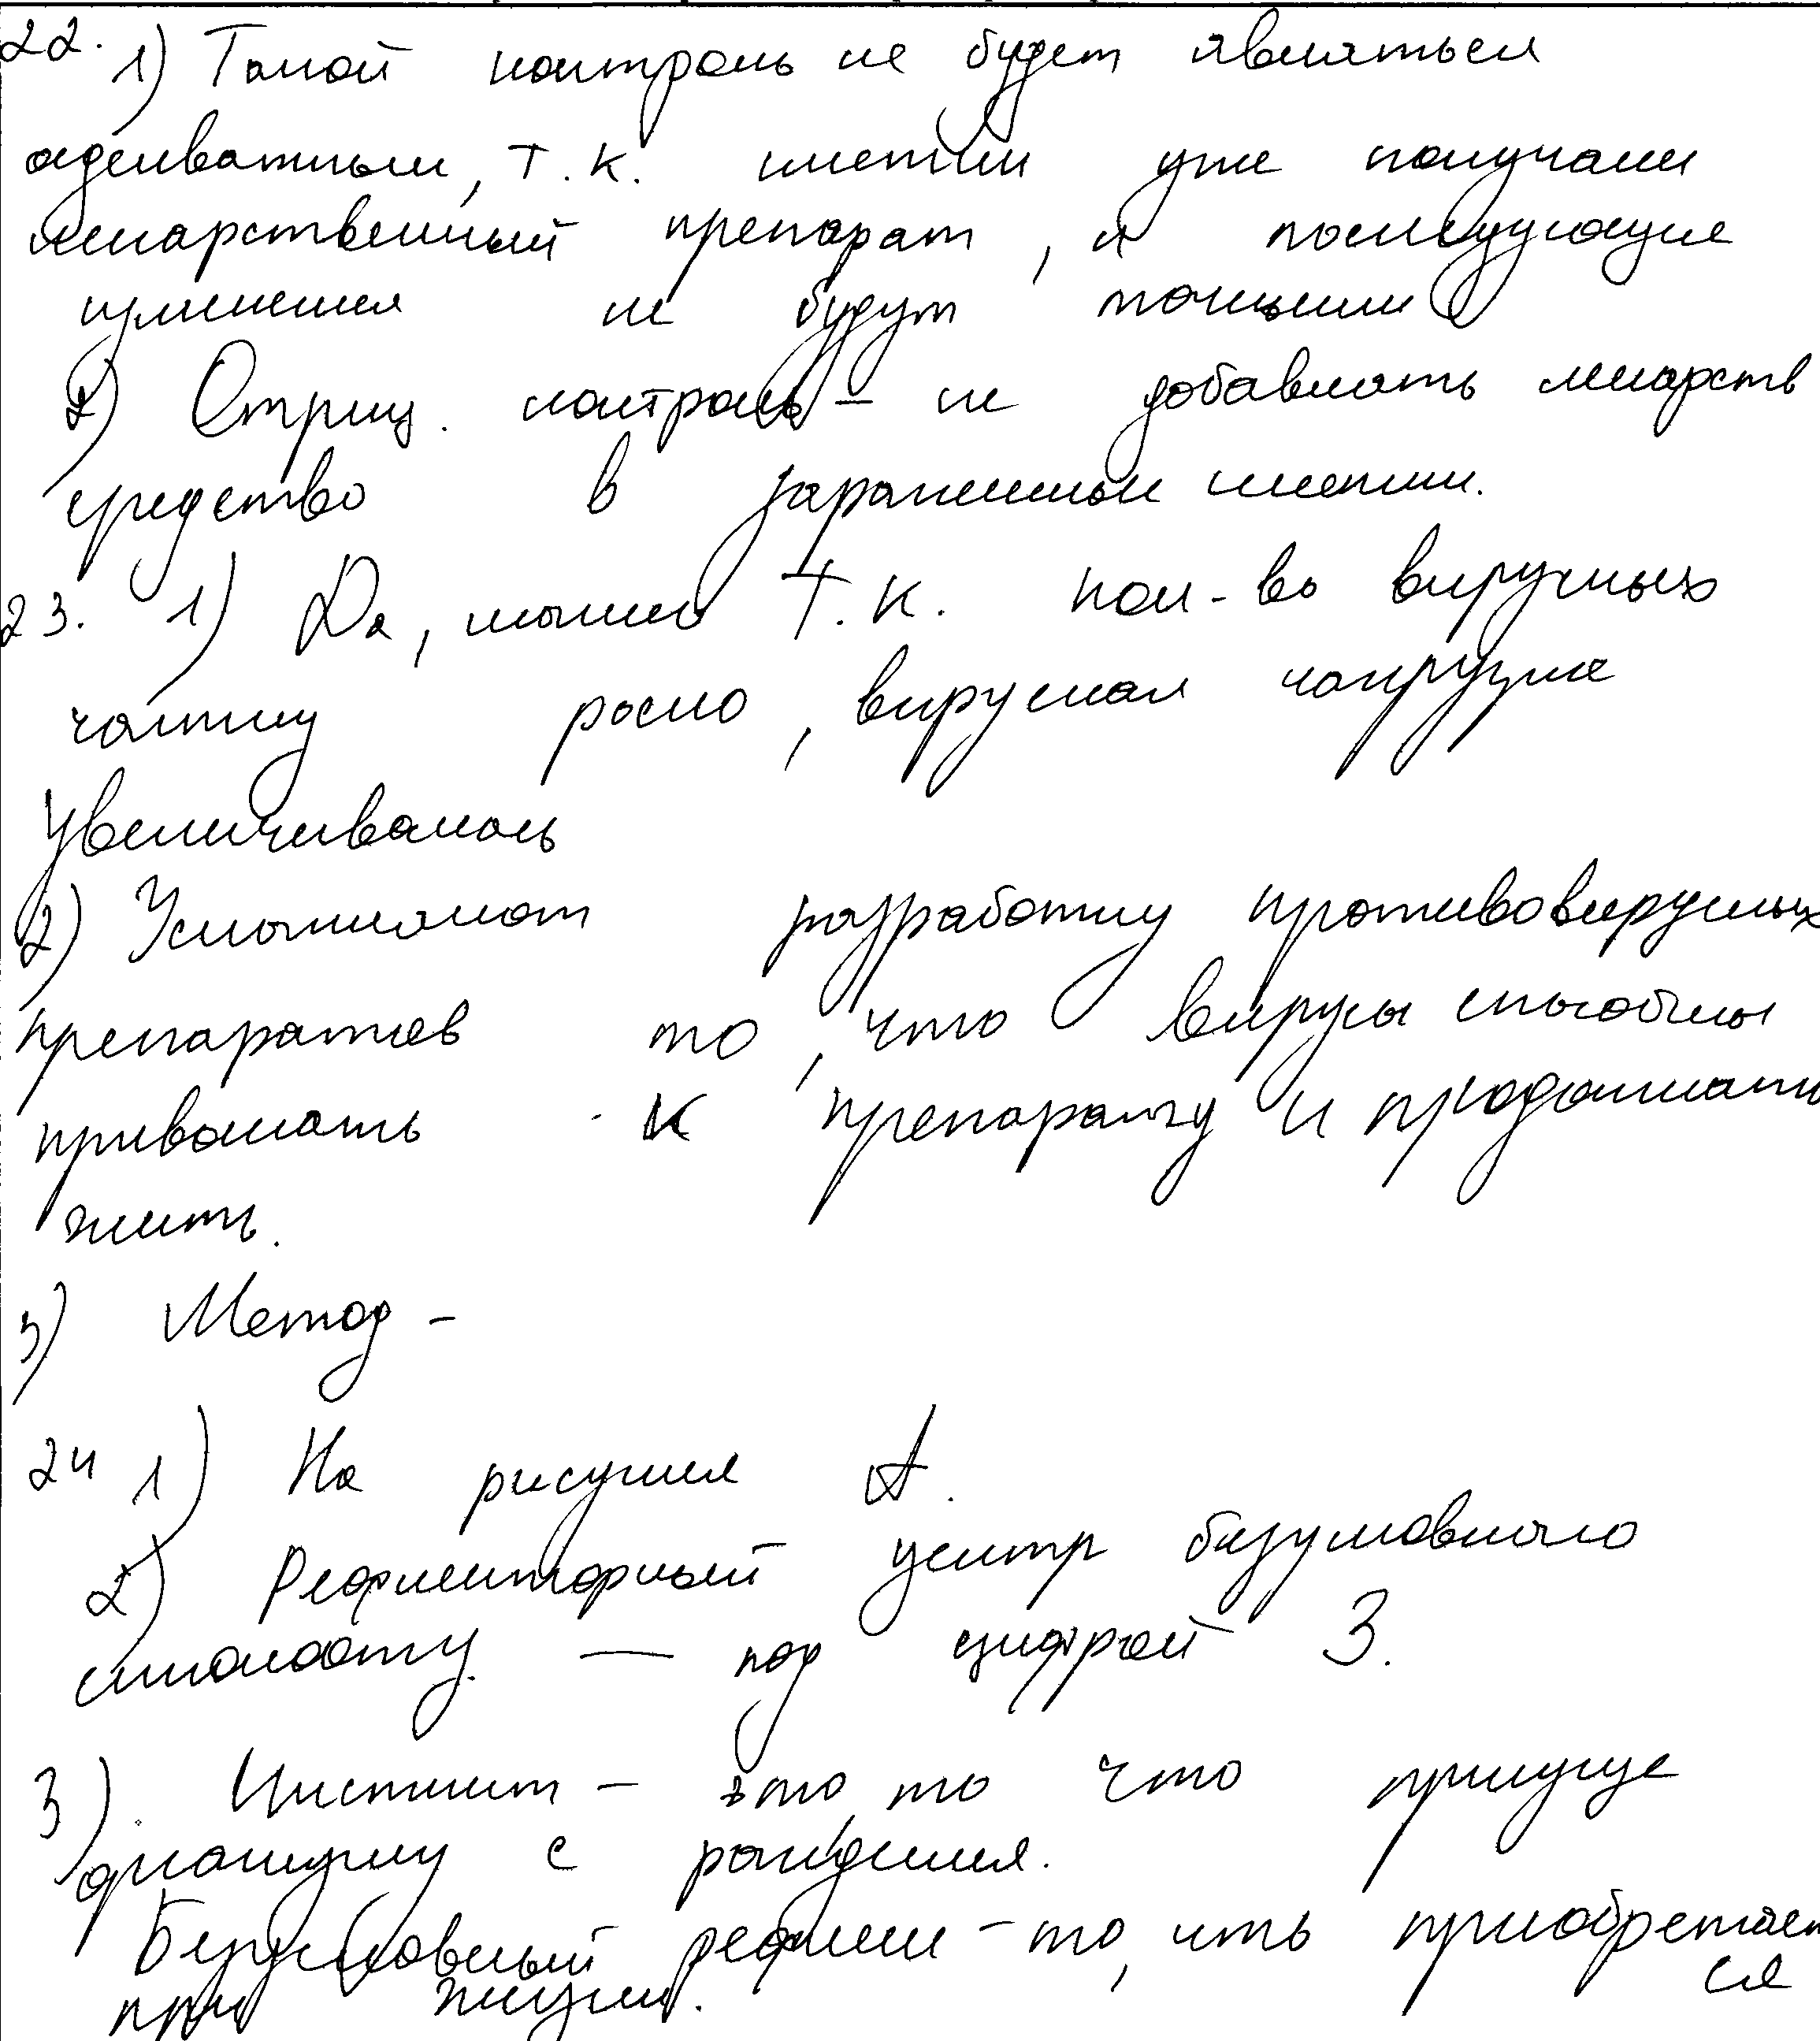 22. 1) Такой контроль не будет являться
адекватным, т.к. клетки уже получали
лекарственный препарат, и последующие
изменения не будут точными
2) Отриц. контроль – не добавлять лекарств
средство в зараженные клетки.
23. 1) Да, можно т.к. кол-во вирусных
частиц росло, вирусная нагрузка
увеличивалась
2) Усложняют разработку противовирусных
препаратов то, что вирусы способны
привыкать к препарату и продолжать
жить.
3) Метод –
24 1) На рисунке А.
2) Рефлекторный центр безусловного
слюноотд. — под цифрой 3.
3) Инстинкт – это то что присуще
организму с рождения.
Безусловный рефлекс – то, что приобретает
ся
при жизни.